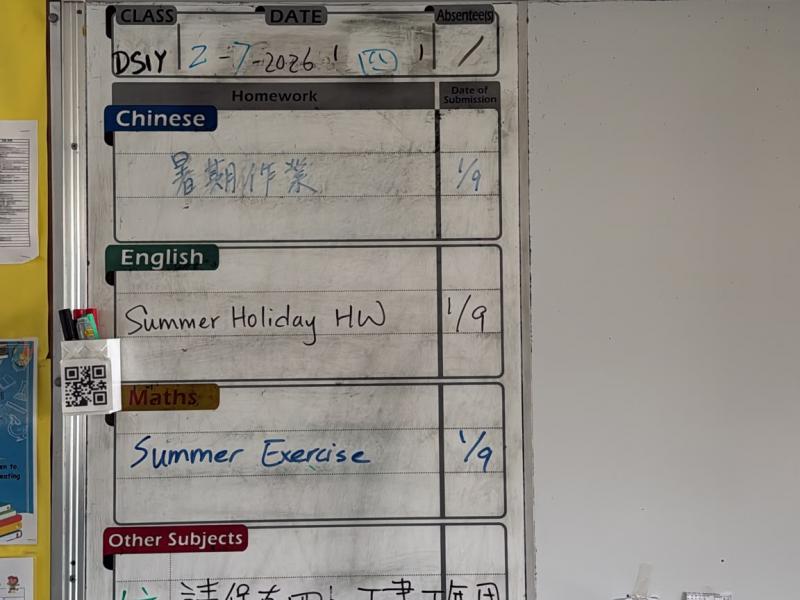 CLASS DATE Absentee(s)
DS1Y 2-7-2026 (四) /
Homework Date of Submission
Chinese
暑期作業 1/9
English
Summer Holiday HW 1/9
Maths
Summer Exercise 1/9
Other Subjects